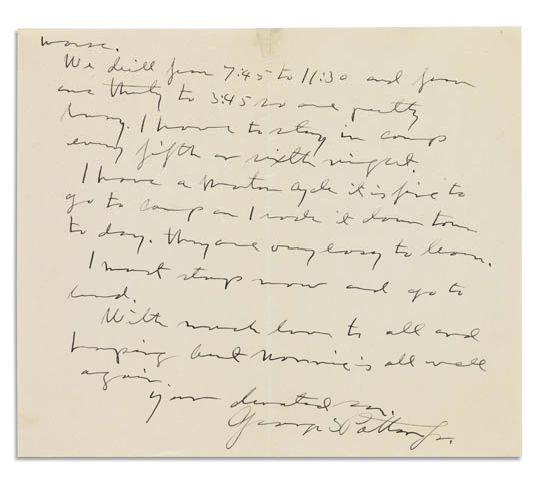 worse.
We drill from 7:45 to 11:30 and from
one thirty to 3:45 so are pretty
busy. I have to stay in camp
every fifth or sixth night.
I have a motor cycle it is fine to
go to camp on I rode it down town
to day. They are very easy to learn.
I must stop now and go to
bed.
With much love to all and
hoping Aunt Nannie is all well
again.
your devoted son.
George S Patton Jr.